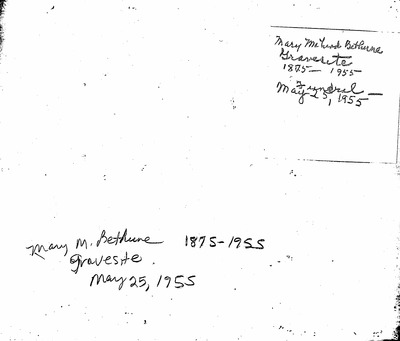 Mary McLeod Bethune
Gravesite
1875— 1955
Funeral —
May 25, 1955
Mary M. Bethune 1875-1955
Gravesite.
May 25, 1955